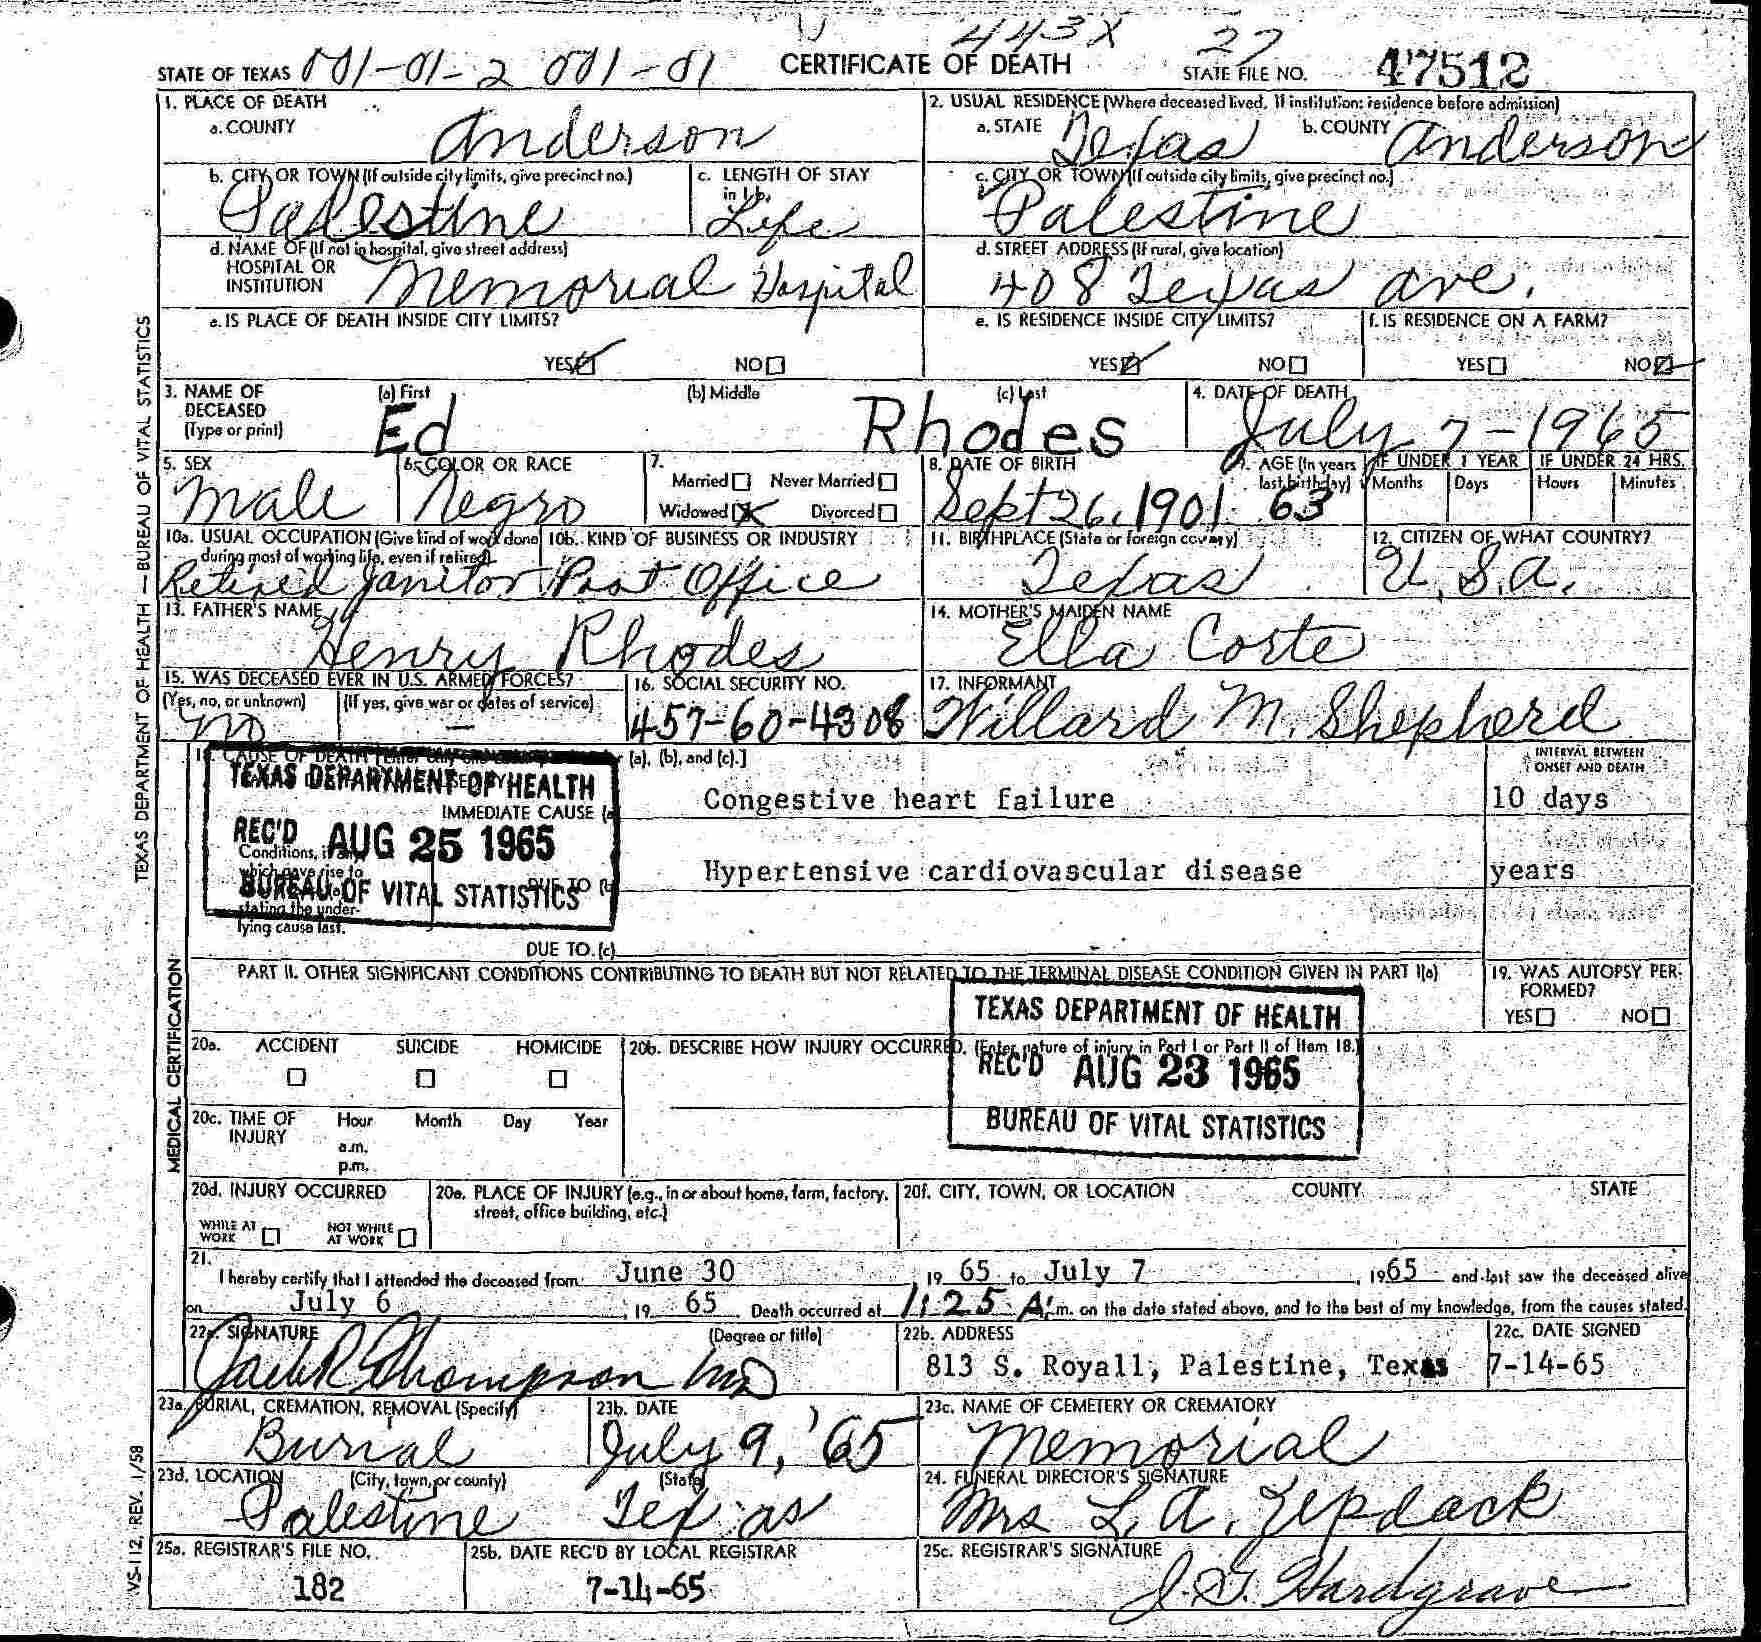 443X 27
STATE OF TEXAS 001-01-2 001-01 CERTIFICATE OF DEATH STATE FILE NO. 47512
1. PLACE OF DEATH
a. COUNTY Anderson
2. USUAL RESIDENCE (Where deceased lived. If institution: residence before admission)
a. STATE Texas b. COUNTY Anderson
b. CITY OR TOWN (If outside city limits, give precinct no.) Palestine
c. LENGTH OF STAY in 1b. Life
c. CITY OR TOWN (If outside city limits, give precinct no.) Palestine
d. NAME OF (If not in hospital, give street address) HOSPITAL OR INSTITUTION Memorial Hospital
d. STREET ADDRESS (If rural, give location) 408 Texas Ave.
e. IS PLACE OF DEATH INSIDE CITY LIMITS? YES NO
e. IS RESIDENCE INSIDE CITY LIMITS? YES NO
f. IS RESIDENCE ON A FARM? YES NO
3. NAME OF DECEASED (Type or print) (a) First Ed (b) Middle (c) Last Rhodes
4. DATE OF DEATH July 7-1965
5. SEX Male
6. COLOR OR RACE Negro
7. Married Never Married Widowed X Divorced
8. DATE OF BIRTH Sept 26, 1901
9. AGE (In years last birthday) 63
IF UNDER 1 YEAR Months Days
IF UNDER 24 HRS. Hours Minutes
10a. USUAL OCCUPATION (Give kind of work done during most of working life, even if retired) Retired Janitor
10b. KIND OF BUSINESS OR INDUSTRY Post Office
11. BIRTHPLACE (State or foreign country) Texas
12. CITIZEN OF WHAT COUNTRY? U.S.A.
13. FATHER'S NAME Henry Rhodes
14. MOTHER'S MAIDEN NAME Ella Corte
15. WAS DECEASED EVER IN U.S. ARMED FORCES?
(Yes, no, or unknown) No (If yes, give war or dates of service) —
16. SOCIAL SECURITY NO. 457-60-4308
17. INFORMANT Willard M. Shepherd
18. CAUSE OF DEATH [Enter only one (a), (b), and (c).]
INTERVAL BETWEEN ONSET AND DEATH
TEXAS DEPARTMENT OF HEALTH
REC'D AUG 25 1965
BUREAU OF VITAL STATISTICS
IMMEDIATE CAUSE (a) Congestive heart failure 10 days
Conditions, if any, which gave rise to
stating the underlying cause last.
DUE TO (b) Hypertensive cardiovascular disease years
DUE TO (c)
PART II. OTHER SIGNIFICANT CONDITIONS CONTRIBUTING TO DEATH BUT NOT RELATED TO THE TERMINAL DISEASE CONDITION GIVEN IN PART I(a)
19. WAS AUTOPSY PERFORMED? YES NO
TEXAS DEPARTMENT OF HEALTH
REC'D AUG 23 1965
BUREAU OF VITAL STATISTICS
20a. ACCIDENT SUICIDE HOMICIDE
20b. DESCRIBE HOW INJURY OCCURRED. (Enter nature of injury in Part I or Part II of Item 18.)
20c. TIME OF INJURY Hour Month Day Year
a.m.
p.m.
20d. INJURY OCCURRED
WHILE AT WORK NOT WHILE AT WORK
20e. PLACE OF INJURY (e.g., in or about home, farm, factory, street, office building, etc.)
20f. CITY, TOWN, OR LOCATION COUNTY STATE
21.
I hereby certify that I attended the deceased from June 30, 19 65 to July 7, 1965 and last saw the deceased alive
on July 6, 19 65 Death occurred at 1:25 A.m. on the date stated above, and to the best of my knowledge, from the causes stated.
22a. SIGNATURE (Degree or title) Jack R Thompson MD
22b. ADDRESS 813 S. Royall, Palestine, Texas
22c. DATE SIGNED 7-14-65
23a. BURIAL, CREMATION, REMOVAL (Specify) Burial
23b. DATE July 9, '65
23c. NAME OF CEMETERY OR CREMATORY Memorial
23d. LOCATION (City, town, or county) (State) Palestine Texas
24. FUNERAL DIRECTOR'S SIGNATURE Mrs L. A.
25a. REGISTRAR'S FILE NO. 182
25b. DATE REC'D BY LOCAL REGISTRAR 7-14-65
25c. REGISTRAR'S SIGNATURE J. G. Hardgrave
TEXAS DEPARTMENT OF HEALTH — BUREAU OF VITAL STATISTICS
MEDICAL CERTIFICATION
VS-112, REV. 1/58